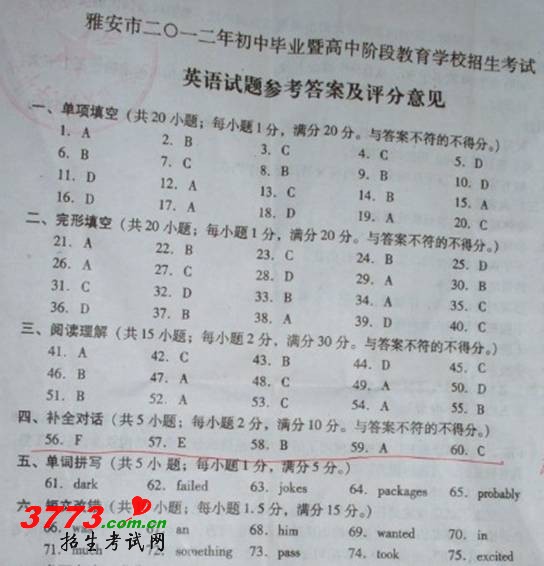 雅安市二〇一二年初中毕业暨高中阶段教育学校招生考试
英语试题参考答案及评分意见
一、单项填空（共20小题；每小题1分，满分20分。与答案不符的不得分。）
1. A 2. B 3. C 4. C 5. D
6. B 7. C 8. B 9. B 10. D
11. D 12. A 13. C 14. B 15. A
16. D 17. A 18. D 19. A 20. C
二、完形填空（共20小题；每小题1分，满分20分。与答案不符的不得分。）
21. A 22. B 23. C 24. B 25. D
26. A 27. C 28. D 29. A 30. B
31. C 32. D 33. B 34. A 35. C
36. D 37. B 38. A 39. D 40. C
三、阅读理解（共15小题；每小题2分，满分30分。与答案不符的不得分。）
41. A 42. C 43. B 44. D 45. C
46. B 47. A 48. C 49. A 50. D
51. B 52. A 53. C 54. A 55. B
四、补全对话（共5小题；每小题2分，满分10分。与答案不符的不得分。）
56. F 57. E 58. B 59. A 60. C
五、单词拼写（共5小题；每小题1分，满分5分。）
61. dark 62. failed 63. jokes 64. packages 65. probably
六、短文改错（共 小题，每小题1.5分，满分15分。）
66. was 67. an 68. him 69. wanted 70. in
71. much 72. something 73. pass 74. took 75. excited
3773.com.cn
招生考试网